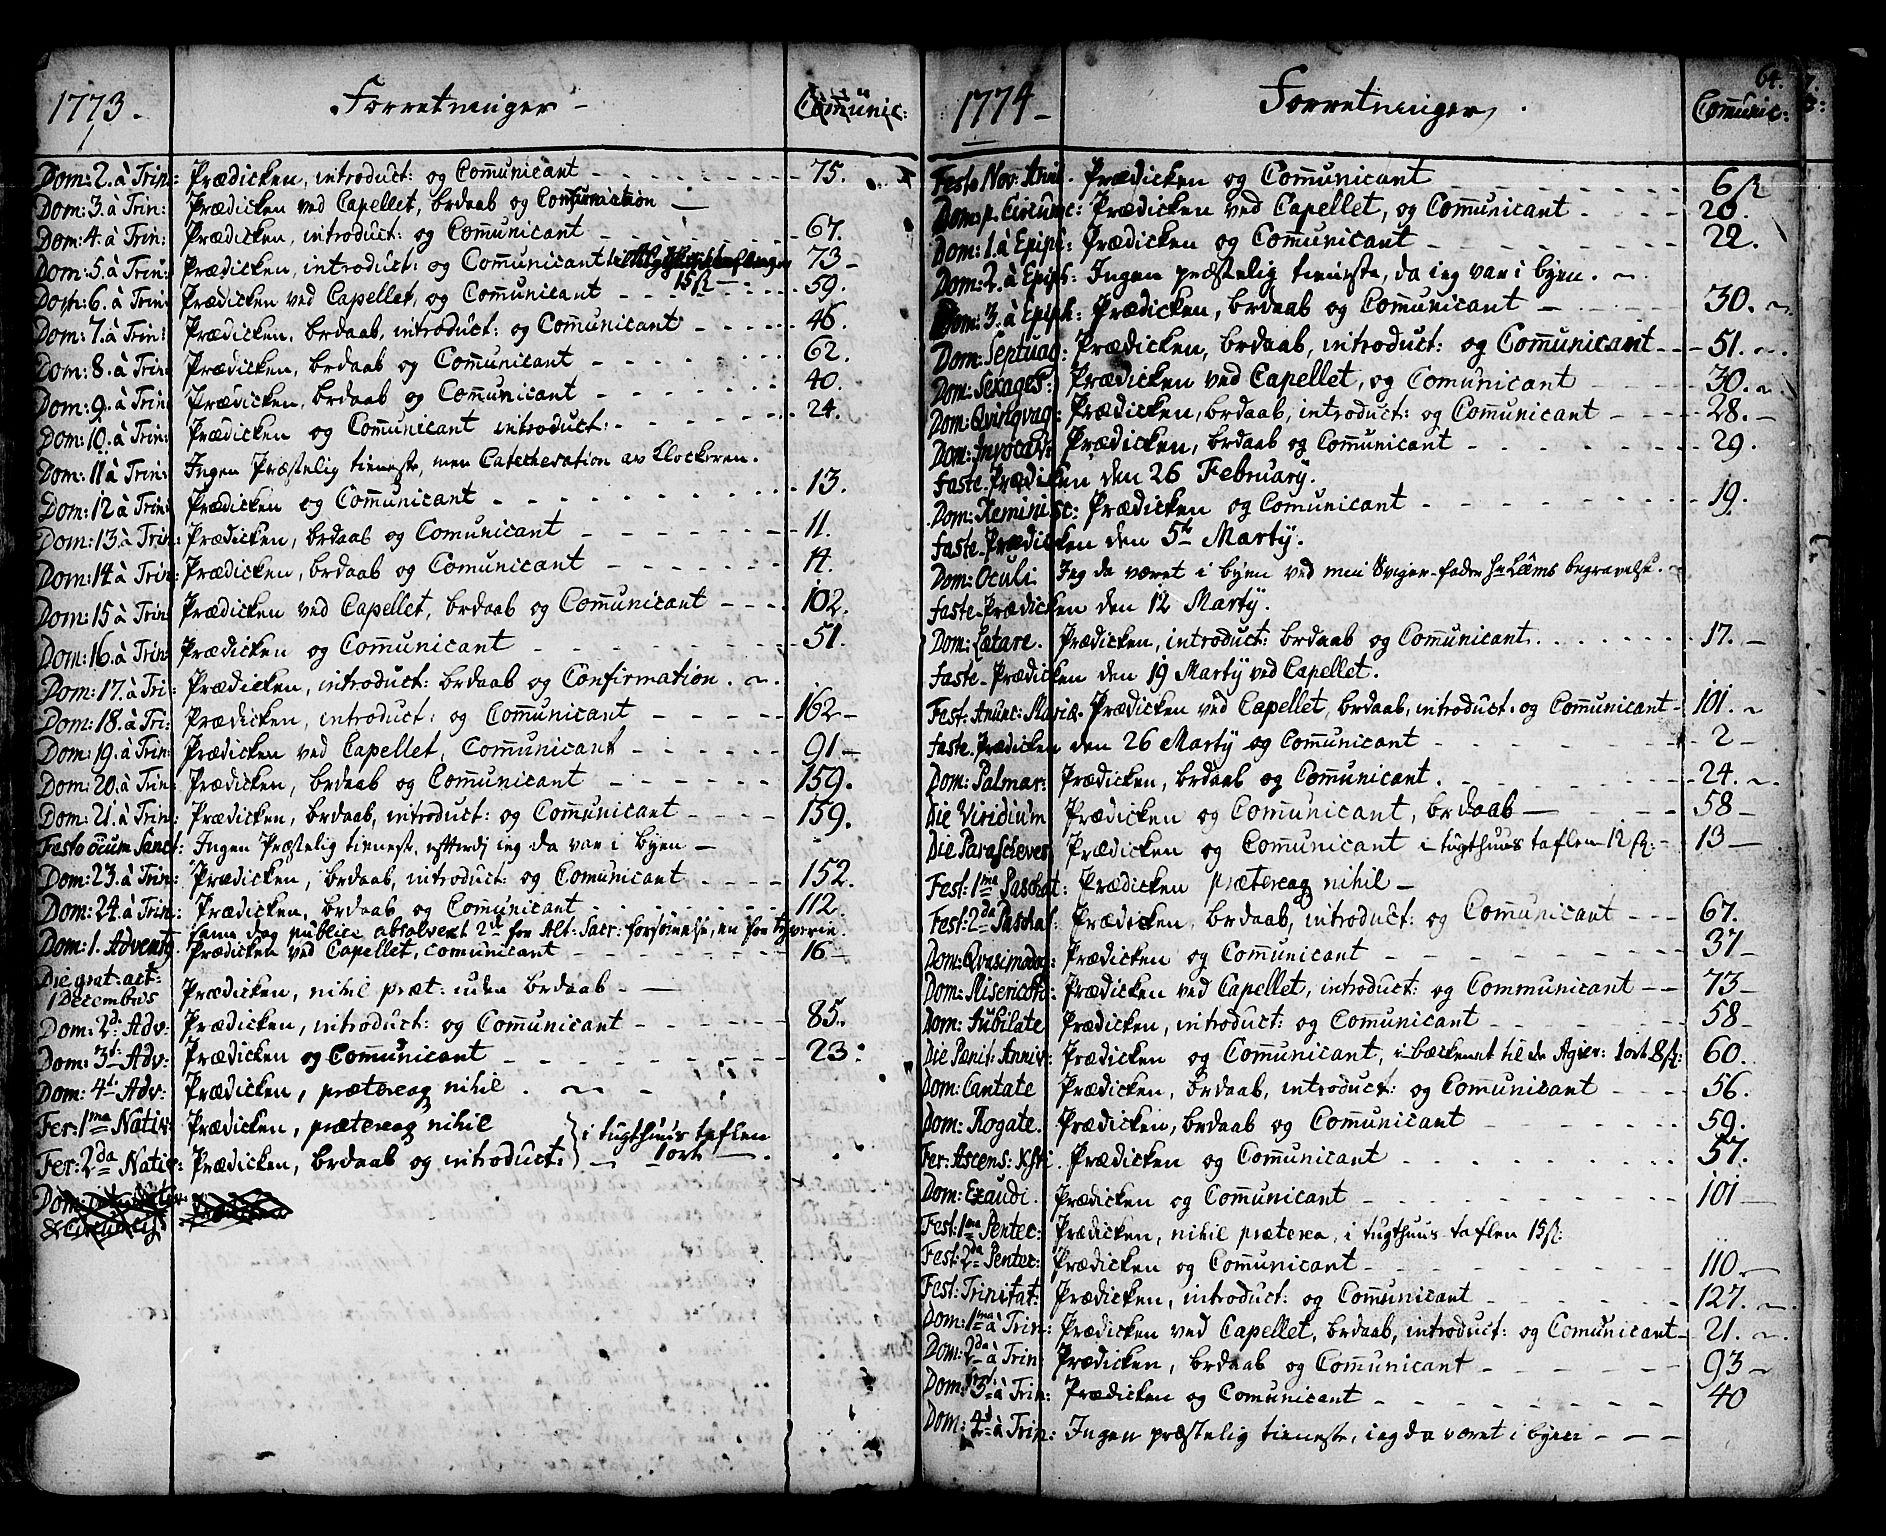 1773. Forretninger – Com̄unic:
Dom: 2. à Trin: Prædicken, introduct: og Com̄unicant 75.
Dom: 3. à Trin: Prædicken ved Capellet, brdaab og Confirmation
Dom: 4. à Trin: Prædicken, introduct: og Com̄unicant 67.
Dom: 5. à Trin: Prædicken, introduct: og Com̄unicant 73 –
15 ß
Dom: 6. à Trin: Prædicken ved Capellet, og Com̄unicant 59.
Dom: 7. à Trin: Prædicken, brdaab, introduct: og Com̄unicant 46.
Dom: 8. à Trin: Prædicken, brdaab og Com̄unicant 62.
Dom: 9. à Trin: Prædicken, brdaab og Com̄unicant 40.
Dom: 10. à Trin: Prædicken og Com̄unicant introduct: 24.
Dom: 11 à Trin: Ingen Præstelig tieneste, men Catechesation av Klockeren.
Dom: 12 à Trin: Prædicken og Com̄unicant 13.
Dom: 13 à Trin: Prædicken, brdaab og Com̄unicant 11.
Dom: 14 à Trin: Prædicken, brdaab og Com̄unicant 14.
Dom: 15 à Trin: Prædicken ved Capellet, brdaab og Com̄unicant 102.
Dom: 16. à Trin: Prædicken og Com̄unicant 51.
Dom: 17. à Tri: Prædicken, introduct: brdaab og Confirmation.
Dom: 18. à Tri: Prædicken, introduct: og Com̄unicant 162 –
Dom: 19. à Trin: Prædicken ved Capellet, Com̄unicant 91 –
Dom: 20. à Trin: Prædicken, brdaab og Com̄unicant 159.
Dom: 21. à Trin: Prædicken, brdaab, introduct: og Com̄unicant 159.
Festo ocum Sanct: Ingen Præstelig tieneste, efterdj ieg da var i byen –
Dom: 23. à Trin: Prædicken, brdaab, introduct: og Com̄unicant 152.
Dom: 24. à Trin: Prædicken, brdaab og Com̄unicant 112.
sam̄e dag publice absolvert 2de for Alt: Sacr: forsømelse, en for tyverie.
Dom: 1. Advent9 Prædicken ved Capellet, com̄unicant 16 –
Die grat: act: 1 Decembris Prædicken, nihil præt: uden brdaab –
Dom: 2d: Adv: Prædicken, introduct: og Com̄unicant 85.
Dom: 3t: Adv: Prædicken og Com̄unicant 23.
Dom: 4t: Adv: Prædicken, prætereaq nihil.
Fer: 1ma Nativ: Prædicken, prætereaq nihil } i tugthuus taflen
Fer: 2da Nativ: Prædicken, brdaab og introduct: } – 1 ort –
64.
1774 – Forretninger. Com̄unic:
Festo Nov: Anni. Prædicken og Com̄unicant 6 ß
Dom p. Circumc: Prædicken ved Capellet, og Com̄unicant 20.
Dom: 1. à Epiph: Prædicken og Com̄unicant 22.
Dom: 2. à Epiph: Ingen præstelig tieneste, da ieg var i byen.
Dom: 3. à Epiph: Prædicken, brdaab og Com̄unicant 30.
Dom: Septuag: Prædicken, brdaab, introduct: og Com̄unicant 51.
Dom: Sexages: Prædicken ved Capellet, og Com̄unicant 30.
Dom: Qvinqvag: Prædicken, brdaab, introduct: og Com̄unicant 28. –
Dom: Invocav: Prædicken, brdaab og Com̄unicant 29.
Faste-Prædicken den 26 February.
Dom: Reminisc: Prædicken og Com̄unicant 19.
faste-Prædicken den 5te Martÿ.
Dom: Oculi. Jeg da været i byen ved min Sviger-fader begravelse.
faste-Prædicken den 12 Martÿ.
Dom: Lætare. Prædicken, introduct: brdaab og Com̄unicant 17. –
faste-Prædicken den 19 Martÿ ved Capellet.
Fest: Anunc: Mariæ. Prædicken ved Capellet, brdaab, introduct: og Com̄unicant 101.
faste-Prædicken den 26 Martÿ og Com̄unicant 2 –
Dom: Palmar: Prædicken, brdaab og Com̄unicant 24.
Die Viridium Prædicken og Com̄unicant, brdaab 58 –
Die Parasceves Prædicken og Com̄unicant i tugthuus taflen 12 ß: 13 –
Fest: 1ma Paschat: Prædicken prætereaq nihil –
Fest: 2da Paschat: Prædicken, brdaab, introduct: og Com̄unicant 67.
Dom: Qvasimodog: Prædicken og Com̄unicant 37
Dom: Misericord: Prædicken ved Capellet, introduct: og Communicant 73 –
Dom: Jubilate Prædicken, introduct: og Com̄unicant 58 –
Die Pœnit: Anniv: Prædicken og Com̄unicant, i bæckenet til de Agier: 1 ort 8 ß: 60.
Dom: Cantate Prædicken, brdaab, introduct: og Com̄unicant 56.
Dom: Rogate. Prædicken, brdaab og Com̄unicant 59.
Fer: Ascens: Xsti. Prædicken og Com̄unicant 57.
Dom: Exaudi. Prædicken og Com̄unicant 101 –
Fest: 1ma Pentec: Prædicken, nihil præterea, i tugthuus taflen 15 ß:
Fest: 2da Pentec: Prædicken og Com̄unicant 110.
Fest: Trinitat: Prædicken, introduct: og Com̄unicant 127.
Dom: 1ma à Trin: Prædicken ved Capellet, brdaab, introduct: og Com̄unicant 21.
Dom: 2da à Trin: Prædicken, brdaab og Com̄unicant 93 –
Dom: 3: à Trin: Prædicken og Com̄unicant 40
Dom: 4d à Trin: Ingen præstelig tieneste, ieg da været i byen –